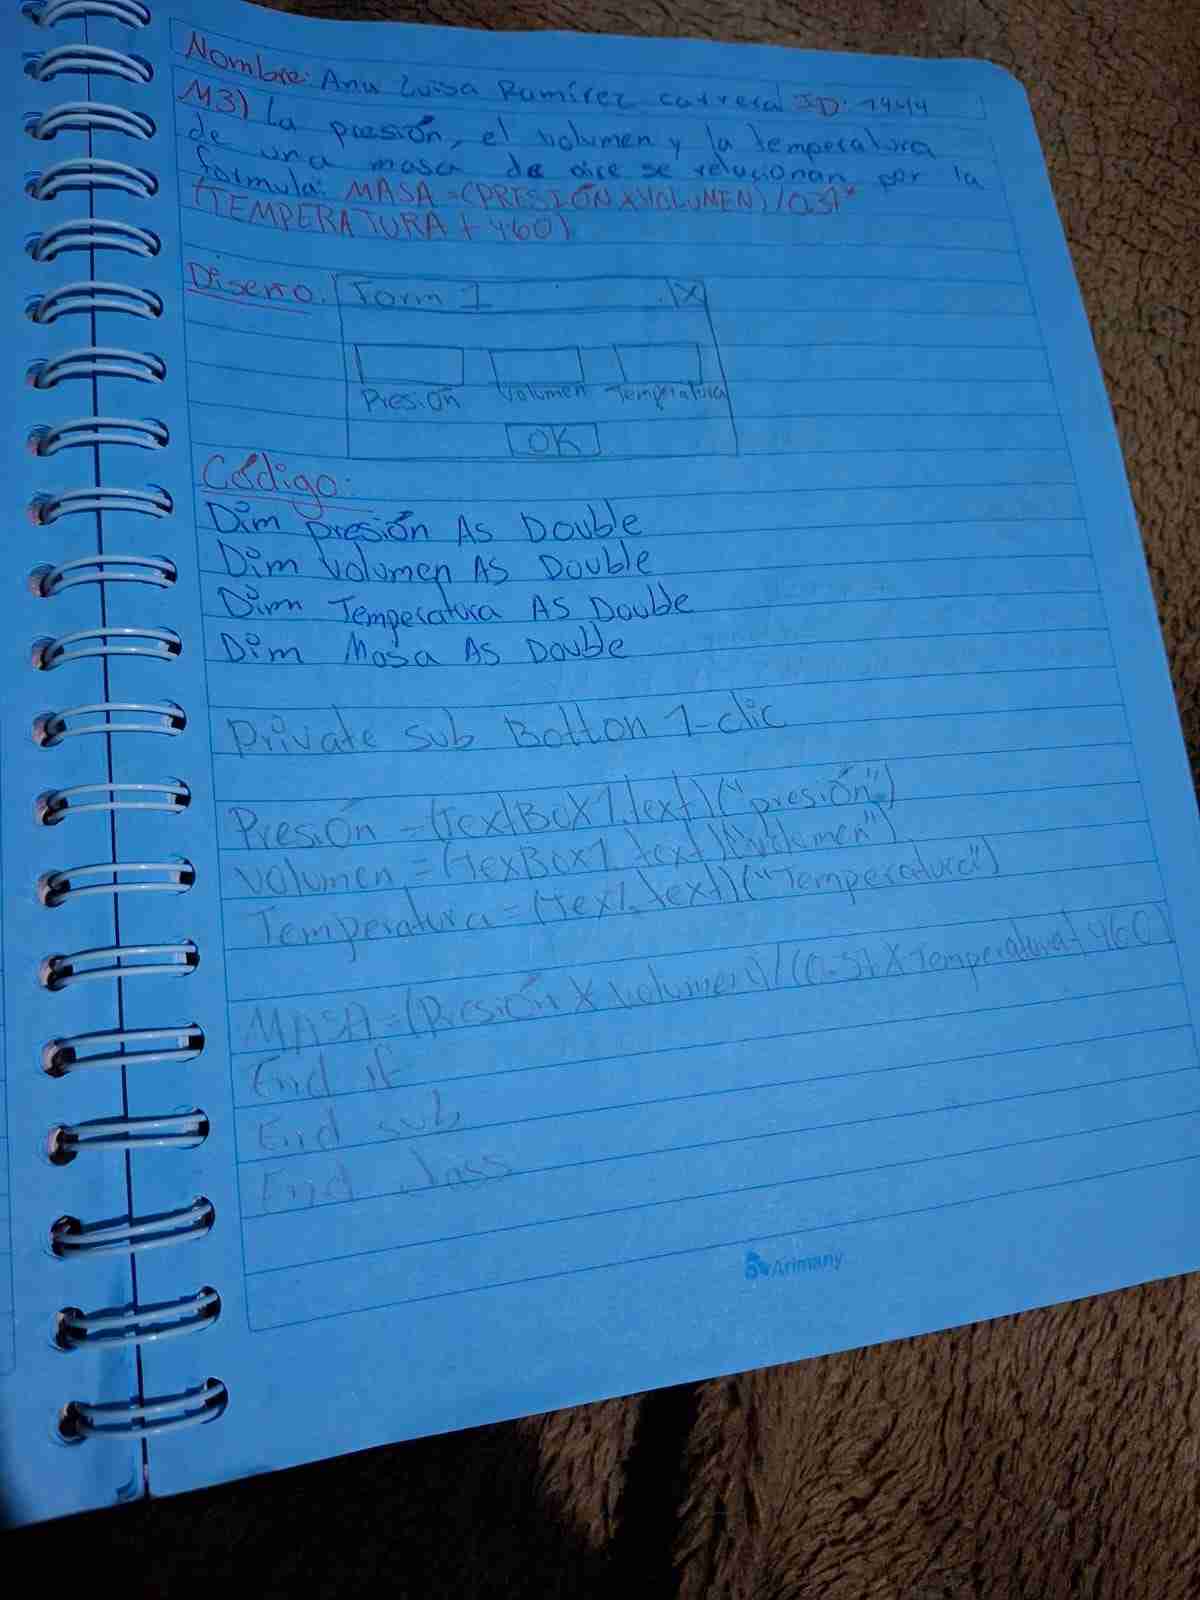 Nombre: Ana Luisa Ramírez Carrera ID: 1444
M3) La presión, el volumen y la temperatura
de una masa de aire se relacionan por la
formula: MASA =(PRESIÓN X VOLUMEN)/0.37*
(TEMPERATURA + 460)
Diseño. Form 1 X
Presión Volumen Temperatura
OK
Código:
Dim presión As Double
Dim Volumen AS Double
Dim Temperatura AS Double
Dim Masa AS Double
Private sub Botton 1-clic
Presión =(TextBox1.text)("presión")
Volumen =(TexBox1.text)("Volumen")
Temperatura=(Tex1.text)("Temperatura")
MASA=(Presión X Volumen)/(0.37 X Temperatura+460)
End If
End sub
End class
Arimany